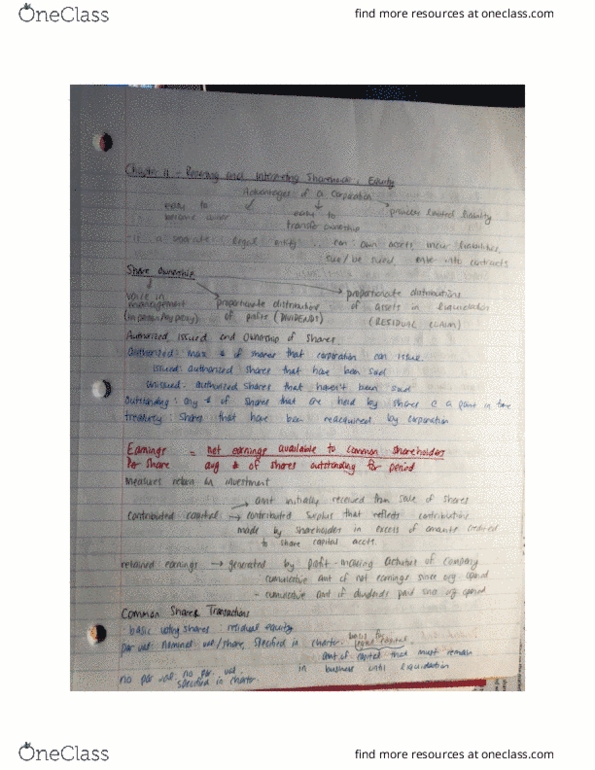 OneClass
find more resources at oneclass.com
Chapter 11 - Reporting and Interpreting Shareholders' Equity
Advantages of a corporation
easy to become owner
easy to transfer ownership
provides limited liability
is a separate legal entity .. can own assets, incur liabilities,
sue/be sued, enter into contracts
Share ownership
voice in management (in person/by proxy)
proportionate distribution of profits (DIVIDENDS)
proportionate distributions of assets in liquidation (RESIDUAL CLAIM)
Authorized, issued and ownership of shares.
Authorized: max # of shares that corporation can issue.
issued: authorized shares that have been sold
unissued: authorized shares that haven't been sold
outstanding: any # of shares that are held by shares @ a point in time
treasury: shares that have been reacquired by corporation
Earnings Per Share = net earnings available to common shareholders
avg # of shares outstanding for period
measures return on investment
→ amt initially received from sale of shares
contributed capital: → contributed surplus that reflects contributions
made by shareholders in excess of amounts credited
to share capital accts.
retained earnings → generated by profit-making activities of company
- cumulative amt of net earnings since org opened
- cumulative amt of dividends paid since org opened
Common Shares Transactions
basic voting shares residual equity
par val: nominal val/share, specified in charter. legal capital
amt of capital that must remain
in business until liquidation
no par val: no par val specified in charter.
OneClass
find more resources at oneclass.com